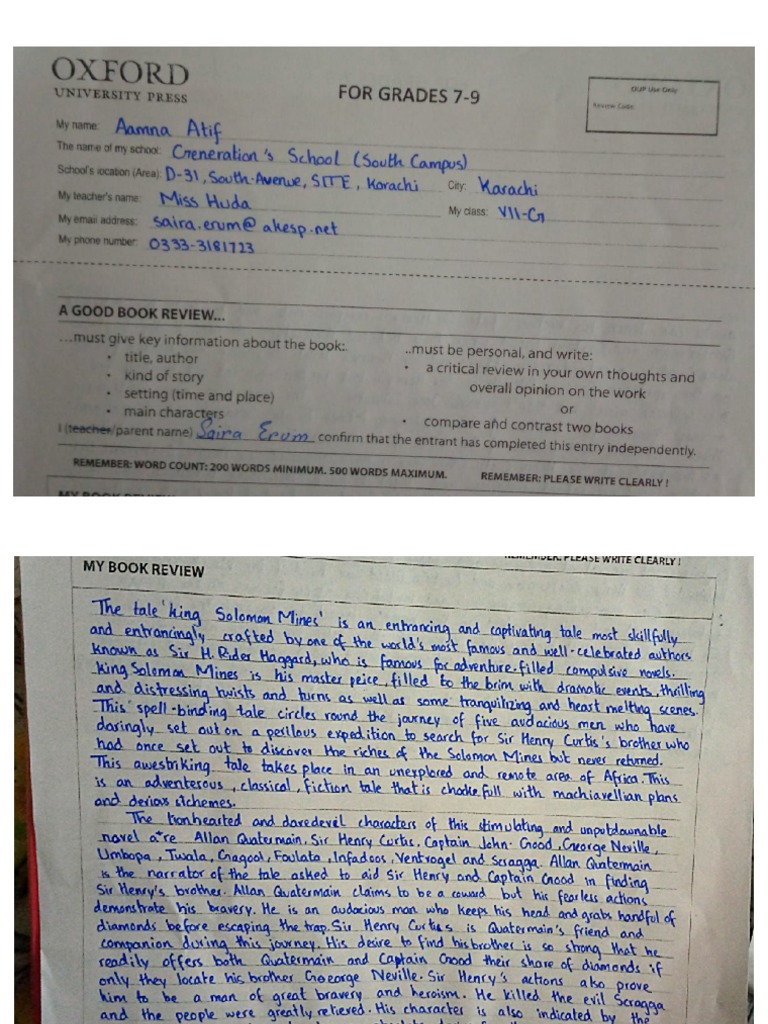 OXFORD
UNIVERSITY PRESS
FOR GRADES 7-9
OUP Use Only
Review Code:
My name: Aamna Atif
The name of my school: Generation's School (South Campus)
School's location (Area): D-31, South-Avenue, SITE, Karachi City: Karachi
My teacher's name: Miss Huda My class: VII-G
My email address: saira.erum@akesp.net
My phone number: 0333-3181723
A GOOD BOOK REVIEW...
...must give key information about the book:
• title, author
• kind of story
• setting (time and place)
• main characters
..must be personal, and write:
• a critical review in your own thoughts and
overall opinion on the work
or
• compare and contrast two books
I (teacher/parent name) Saira Erum confirm that the entrant has completed this entry independently.
REMEMBER: WORD COUNT: 200 WORDS MINIMUM. 500 WORDS MAXIMUM. REMEMBER: PLEASE WRITE CLEARLY !
REMEMBER: PLEASE WRITE CLEARLY !
MY BOOK REVIEW
The tale 'king Solomon Mines' is an entrancing and captivating tale most skillfully
and entrancingly crafted by one of the world's most famous and well-celebrated authors
known as Sir H. Rider Haggard, who is famous for adventure-filled compulsive novels.
King Solomon Mines is his master peice, filled to the brim with dramatic events, thrilling
and distressing twists and turns as well as some tranquilizing and heart melting scenes.
This spell-binding tale circles round the journey of five audacious men who have
daringly set out on a perilous expedition to search for Sir Henry Curtis's brother who
had once set out to discover the riches of the Solomon Mines but never returned.
This awestriking tale takes place in an unexplored and remote area of Africa. This
is an adventerous, classical, fiction tale that is chockefull with machiavellian plans
and devious schemes.
The lionhearted and daredevil characters of this stimulating and unputdownable
novel are Allan Quatermain, Sir Henry Curtis, Captain John Good, George Neville,
Umbopa, Twala, Gagool, Foulata, Infadoos, Ventvogel and Scragga. Allan Quatermain
is the narrator of the tale asked to aid Sir Henry and Captain Good in finding
Sir Henry's brother. Allan Quatermain claims to be a coward but his fearless actions
demonstrate his bravery. He is an audacious man who keeps his head and grabs handful of
diamonds before escaping the trap. Sir Henry Curtis is Quatermain's friend and
companion during this journey. His desire to find his brother is so strong that he
readily offers both Quatermain and Captain Good their share of diamonds if
only they locate his brother George Neville. Sir Henry's actions also prove
him to be a man of great bravery and heroism. He killed the evil Scragga
and the people were greatly relieved. His character is also indicated by the